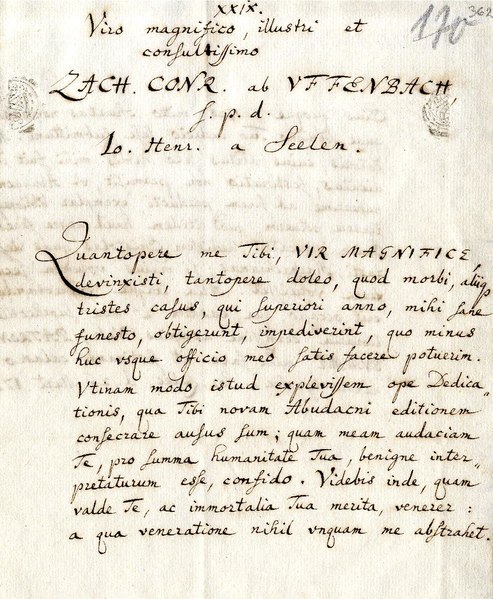 XXIX.
170
362
Viro magnifico, illustri et
consultissimo
ZACH. CONR. ab VFFENBACH
s. p. d.
Io. Henr. a Seelen.
Quantopere me Tibi, VIR MAGNIFICE,
devinxisti, tantopere doleo, quod morbi, aliiq
tristes casus, qui superiori anno, mihi sane
funesto, obtigerunt, impediverint, quo minus
huc vsque officio meo satis facere potuerim.
Vtinam modo istud explevissem ope Dedica-
tionis, qua Tibi novam Abudacni editionem
consecrare ausus sum; quam meam audaciam
Te, pro summa humanitate Tua, benigne inter-
pretaturum esse, confido. Videbis inde, quam
valde Te, ac immortalia Tua merita, venerer:
a qua veneratione nihil vnquam me abstrahet.